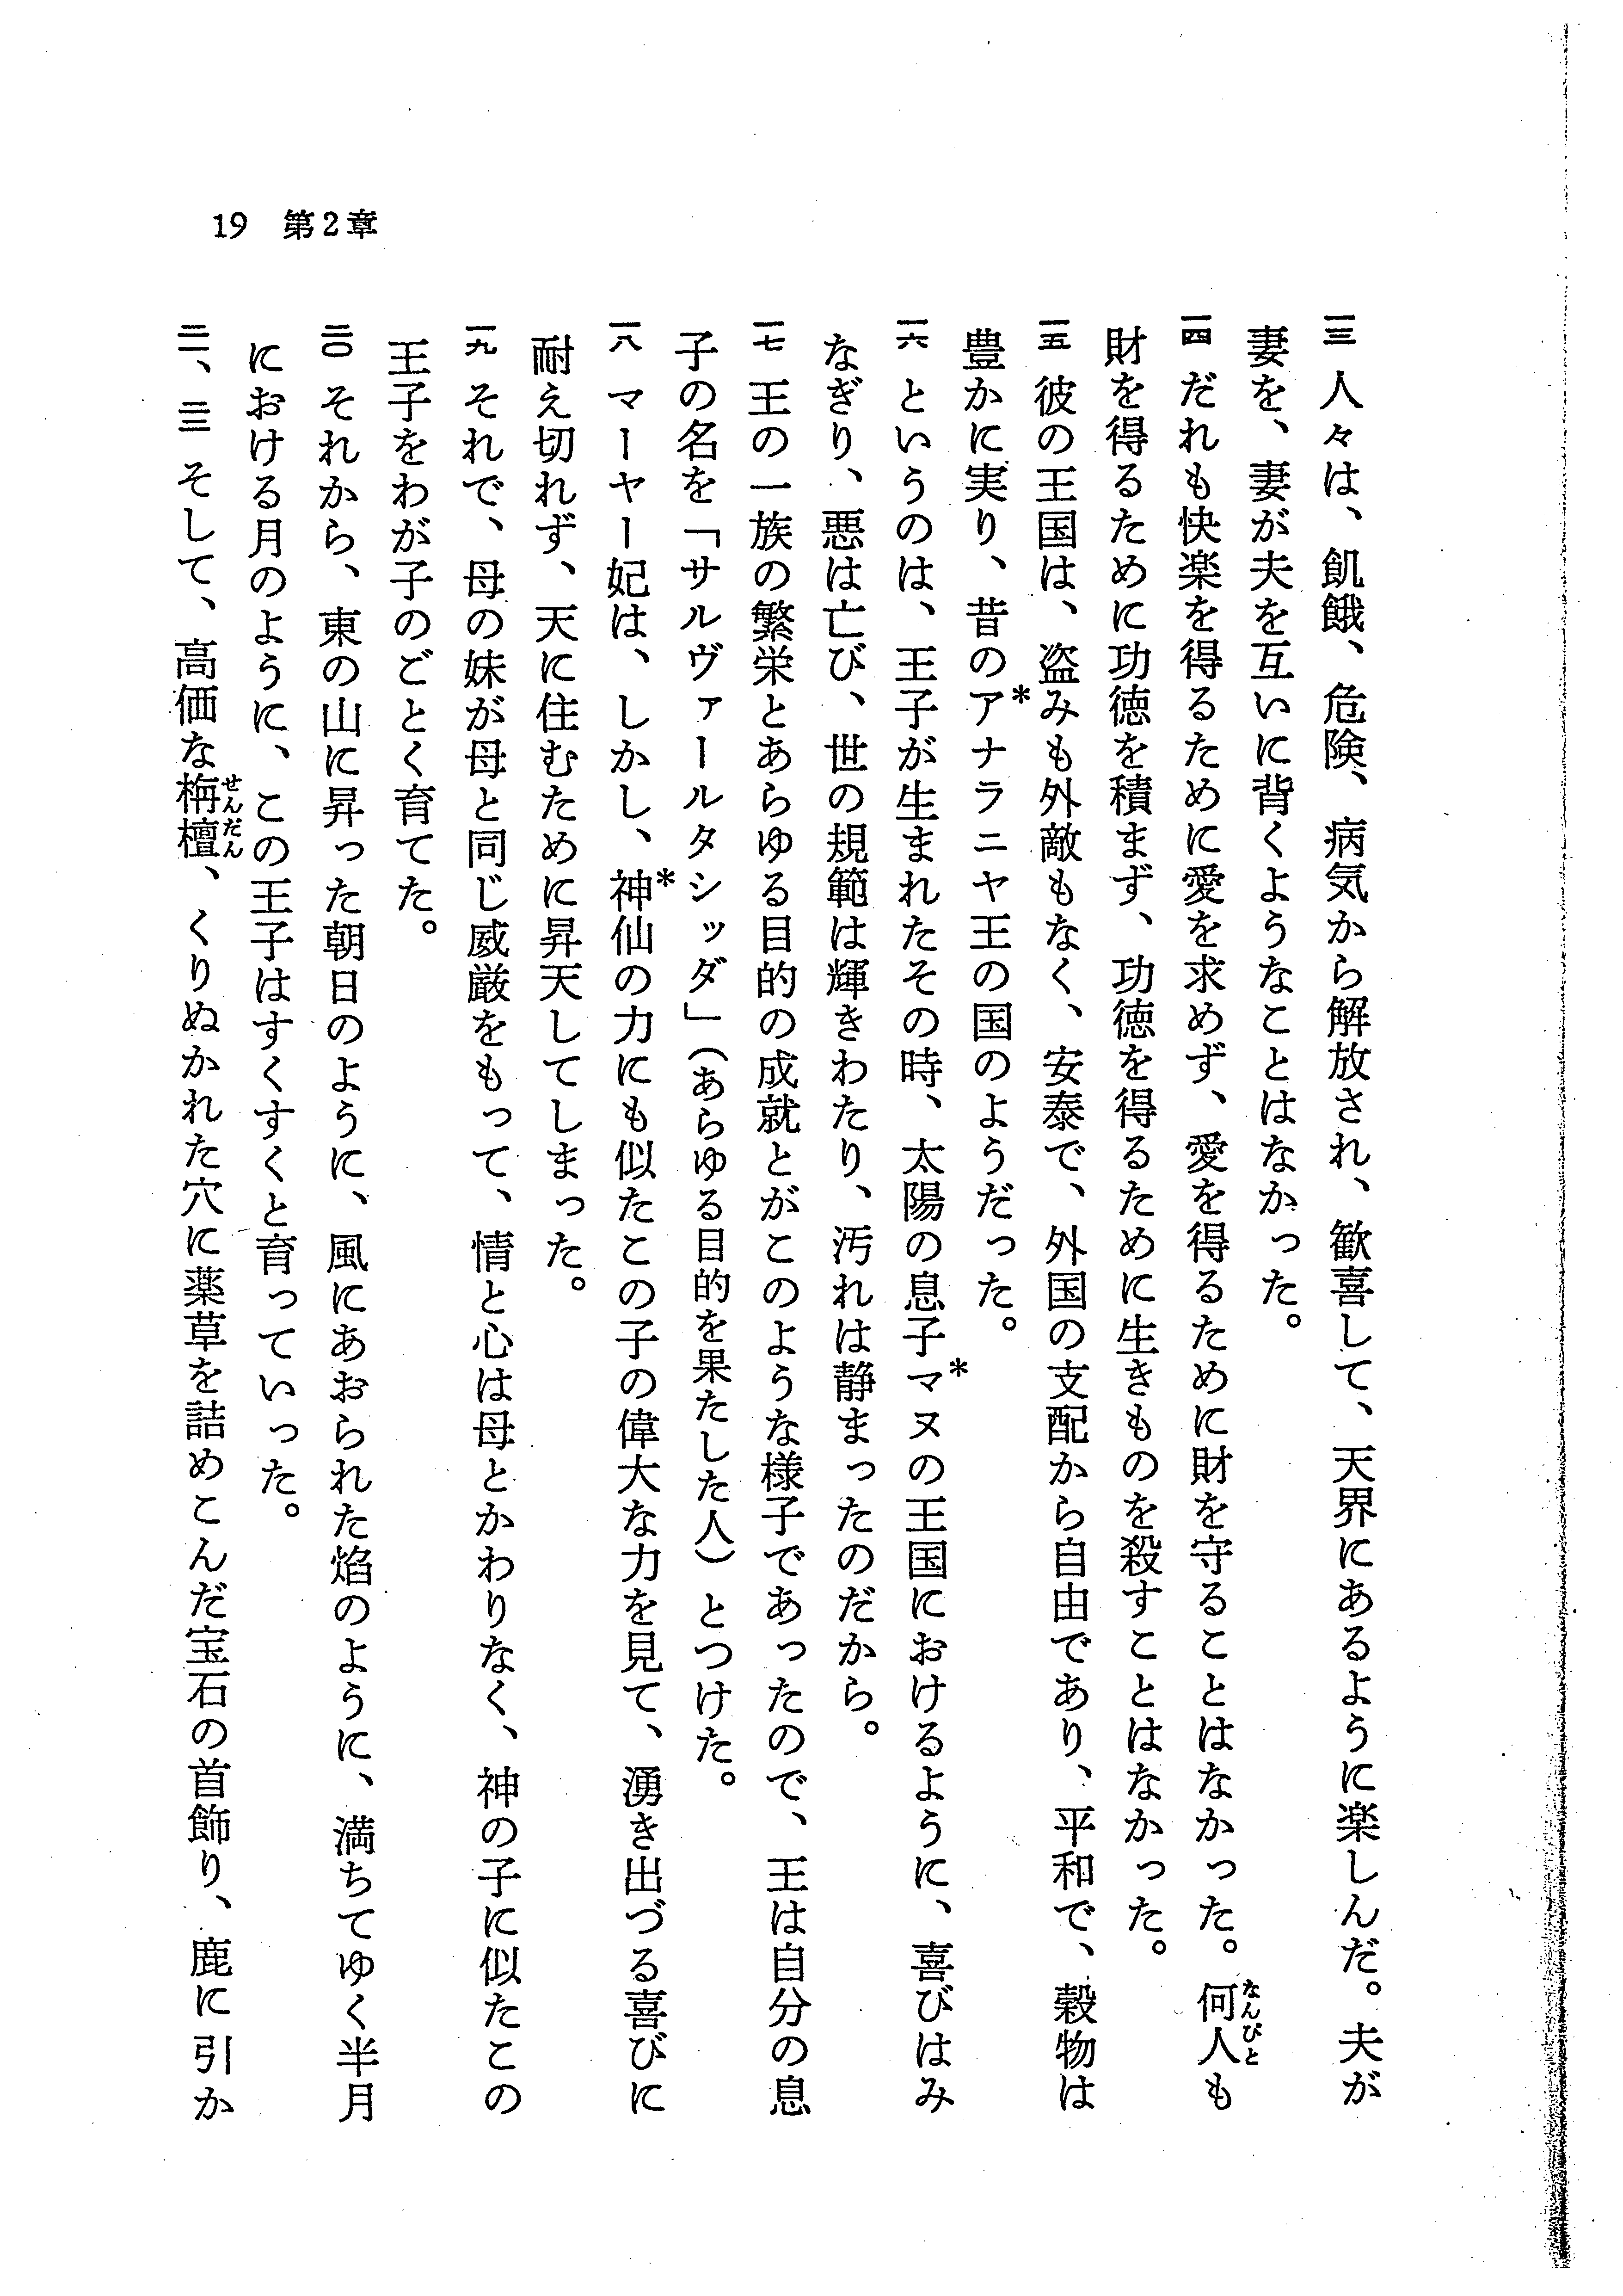 19 第2章
一三 人々は、飢餓、危険、病気から解放され、歓喜して、天界にあるように楽しんだ。夫が
妻を、妻が夫を互いに背くようなことはなかった。
一四 だれも快楽を得るために愛を求めず、愛を得るために財を守ることはなかった。何人も
なんぴと
財を得るために功徳を積まず、功徳を得るために生きものを殺すことはなかった。
一五 彼の王国は、盗みも外敵もなく、安泰で、外国の支配から自由であり、平和で、穀物は
豊かに実り、昔の*アナラニヤ王の国のようだった。
一六 というのは、王子が生まれたその時、太陽の息子*マヌの王国におけるように、喜びはみ
なぎり、悪は亡び、世の規範は輝きわたり、汚れは静まったのだから。
一七 王の一族の繁栄とあらゆる目的の成就とがこのような様子であったので、王は自分の息
子の名を「サルヴァールタシッダ」(あらゆる目的を果たした人)とつけた。
一八 マーヤー妃は、しかし、*神仙の力にも似たこの子の偉大な力を見て、湧き出づる喜びに
耐え切れず、天に住むために昇天してしまった。
一九 それで、母の妹が母と同じ威厳をもって、情と心は母とかわりなく、神の子に似たこの
王子をわが子のごとく育てた。
二〇 それから、東の山に昇った朝日のように、風にあおられた焰のように、満ちてゆく半月
における月のように、この王子はすくすくと育っていった。
二一、二二 そして、高価な栴檀、くりぬかれた穴に薬草を詰めこんだ宝石の首飾り、鹿に引か
せんだん